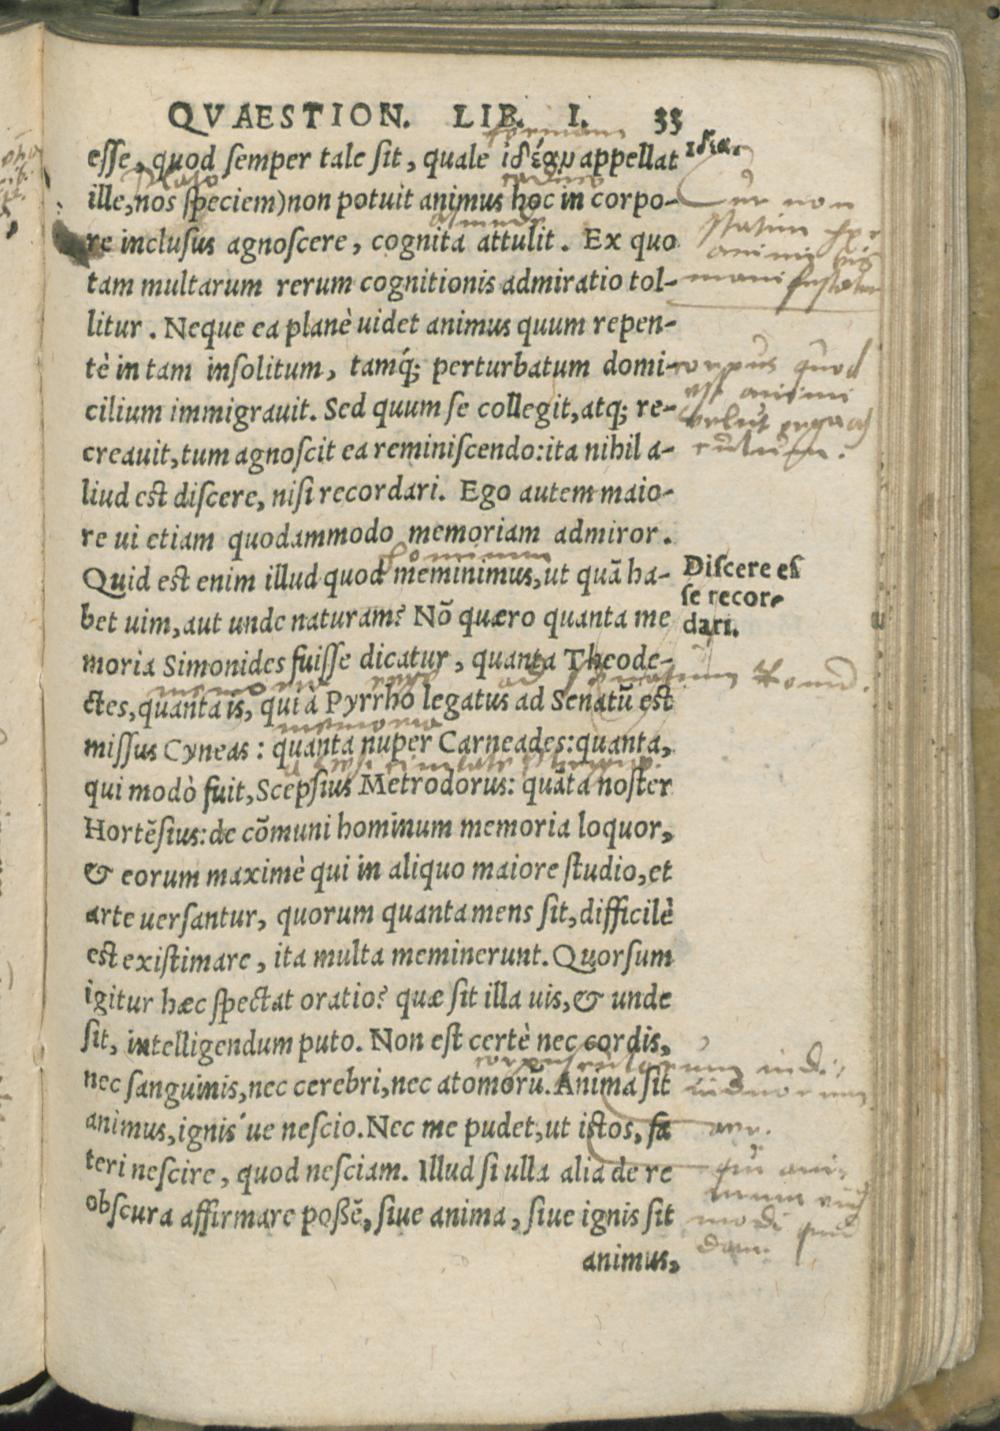 QVAESTION. LIB. I. 33
formam
esse, quod semper tale sit, quale ἰδέαν appellat
ἰδέα.
Plato
ille, nos speciem) non potuit animus hoc in corpo-
Cur non
statim
re inclusus agnoscere, cognita attulit. Ex quo
animi
tam multarum rerum cognitionis admiratio tol-
manifestatur
litur. Neque ea planè uidet animus quum repen-
tè in tam insolitum, tamq́; perturbatum domi-
corpus quod
est animi
cilium immigrauit. Sed quum se collegit, atq; re-
velut
creauit, tum agnoscit ea reminiscendo: ita nihil a-
liud est discere, nisi recordari. Ego autem maio-
re ui etiam quodammodo memoriam admiror.
hominum
Quid est enim illud quod meminimus, ut quā ha-
Discere es
se recor-
dari.
bet uim, aut unde naturam? Nō quæro quanta me
moria Simonides fuisse dicatur, quanta Theode-
memoria rege ad senatum Romā.
ctes, quanta is, qui à Pyrrho legatus ad Senatū est
memoria
missus Cyneas: quanta nuper Carneades: quanta,
qui modò fuit, Scepsius Metrodorus: quāta noster
Hortēsius: de cōmuni hominum memoria loquor,
& eorum maximè qui in aliquo maiore studio, et
arte uersantur, quorum quanta mens sit, difficilè
est existimare, ita multa meminerunt. Quorsum
igitur hæc spectat oratio? quæ sit illa uis, & unde
sit, intelligendum puto. Non est certè nec cordis,
corpusculorum indi-
uiduorum
nec sanguinis, nec cerebri, nec atomorū. Anima sit
animus, ignis ́ue nescio. Nec me pudet, ut istos, fa
aer.
teri nescire, quod nesciam. Illud si ulla alia de re
qui ani-
mum
obscura affirmare possē, siue anima, siue ignis sit
animus,